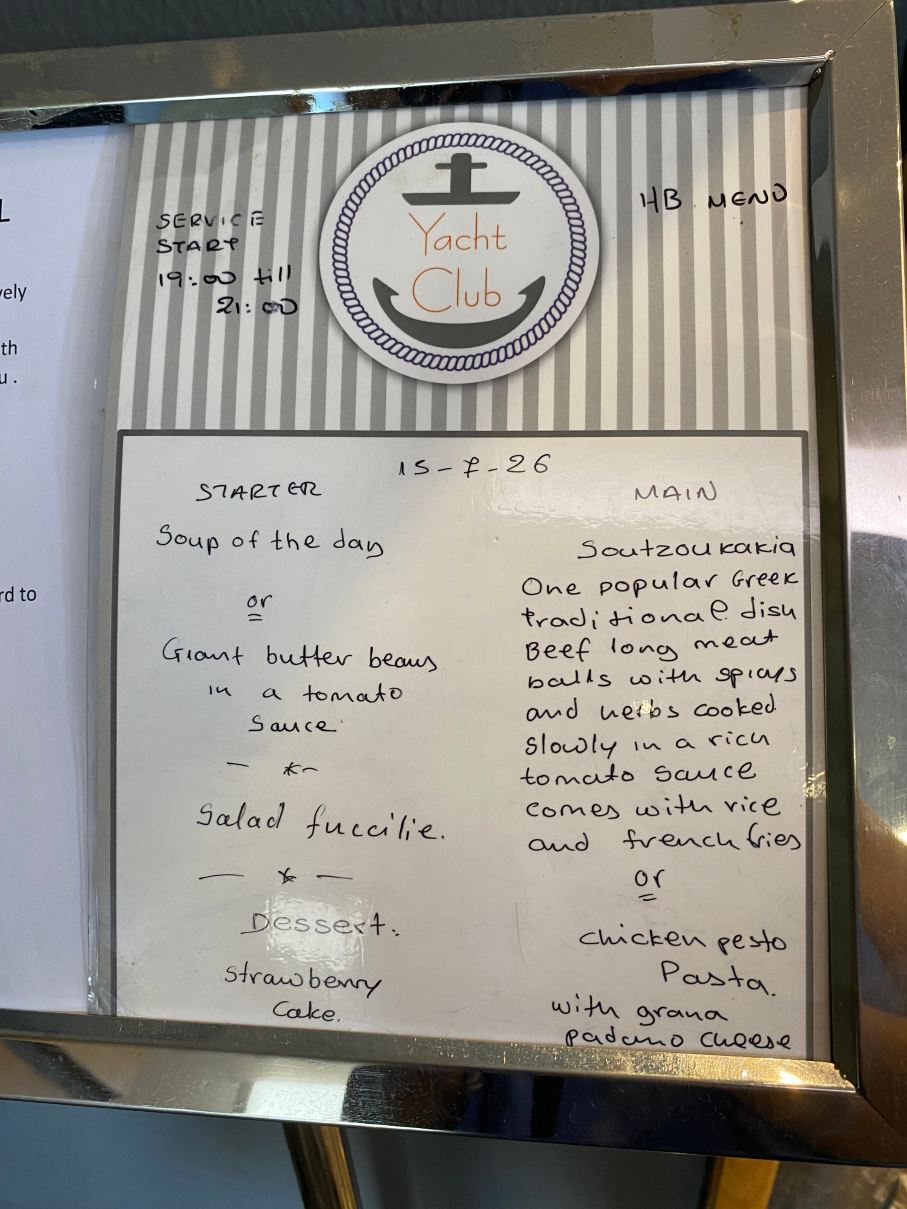 L
vely
th
u .
rd to
SERVICE
START
19:00 till
21:00
Yacht
Club
HB MENU
15-7-26
STARTER
Soup of the day
or
Giant butter beans
in a tomato
Sauce
- *-
Salad fuccilie.
— * —
Dessert.
Strawberry
Cake.
MAIN
Soutzoukakia
One popular Greek
traditional dish
Beef long meat
balls with spicys
and herbs cooked
slowly in a rich
tomato sauce
comes with rice
and french fries
or
chicken pesto
Pasta.
with grana
padano cheese